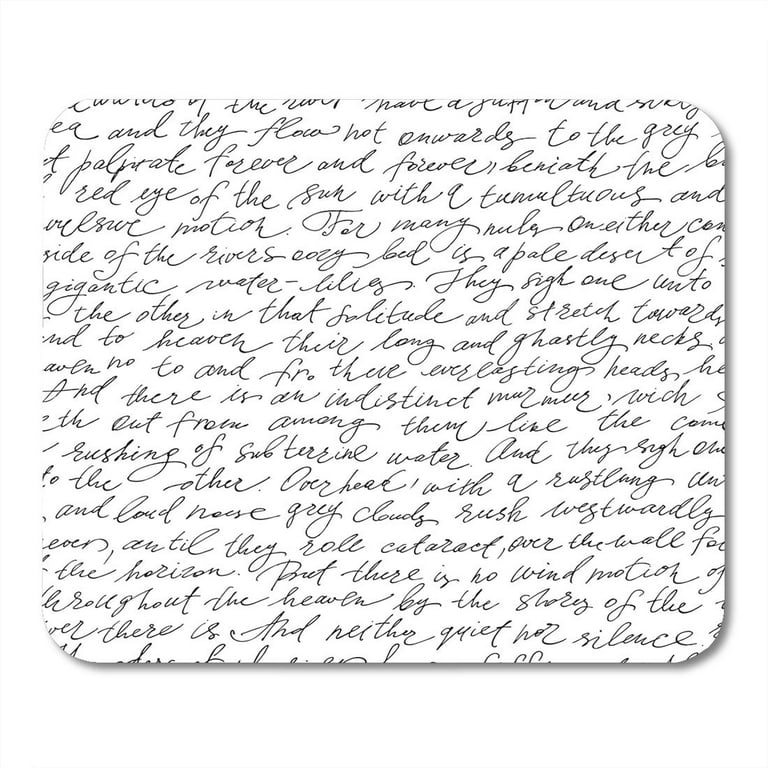 of the river have a and
ea and they flow not onwards to the grey
t palpitate forever and forever, beneath the
red eye of the sun with a tumultuous and
vulsive motion. For many miles on either con
side of the rivers oozy bed is a pale desert of
gigantic water-lilies. They sigh one unto
the other in that solitude and stretch towards
nd to heaven their long and ghastly necks.
aven no to and fro there everlasting heads, he
And there is an indistinct murmur, wich
eth out from among them like the come
rushing of subterrine water. And they sigh one
to the other. Overhead, with a rustlung an
and loud noise grey clouds rush westwardly
ever, until they role cataract, over the wall fo
the horizon. But there is no wind motion of
throughout the heaven by the shory of the
ver there is And neither quiet nor silence.